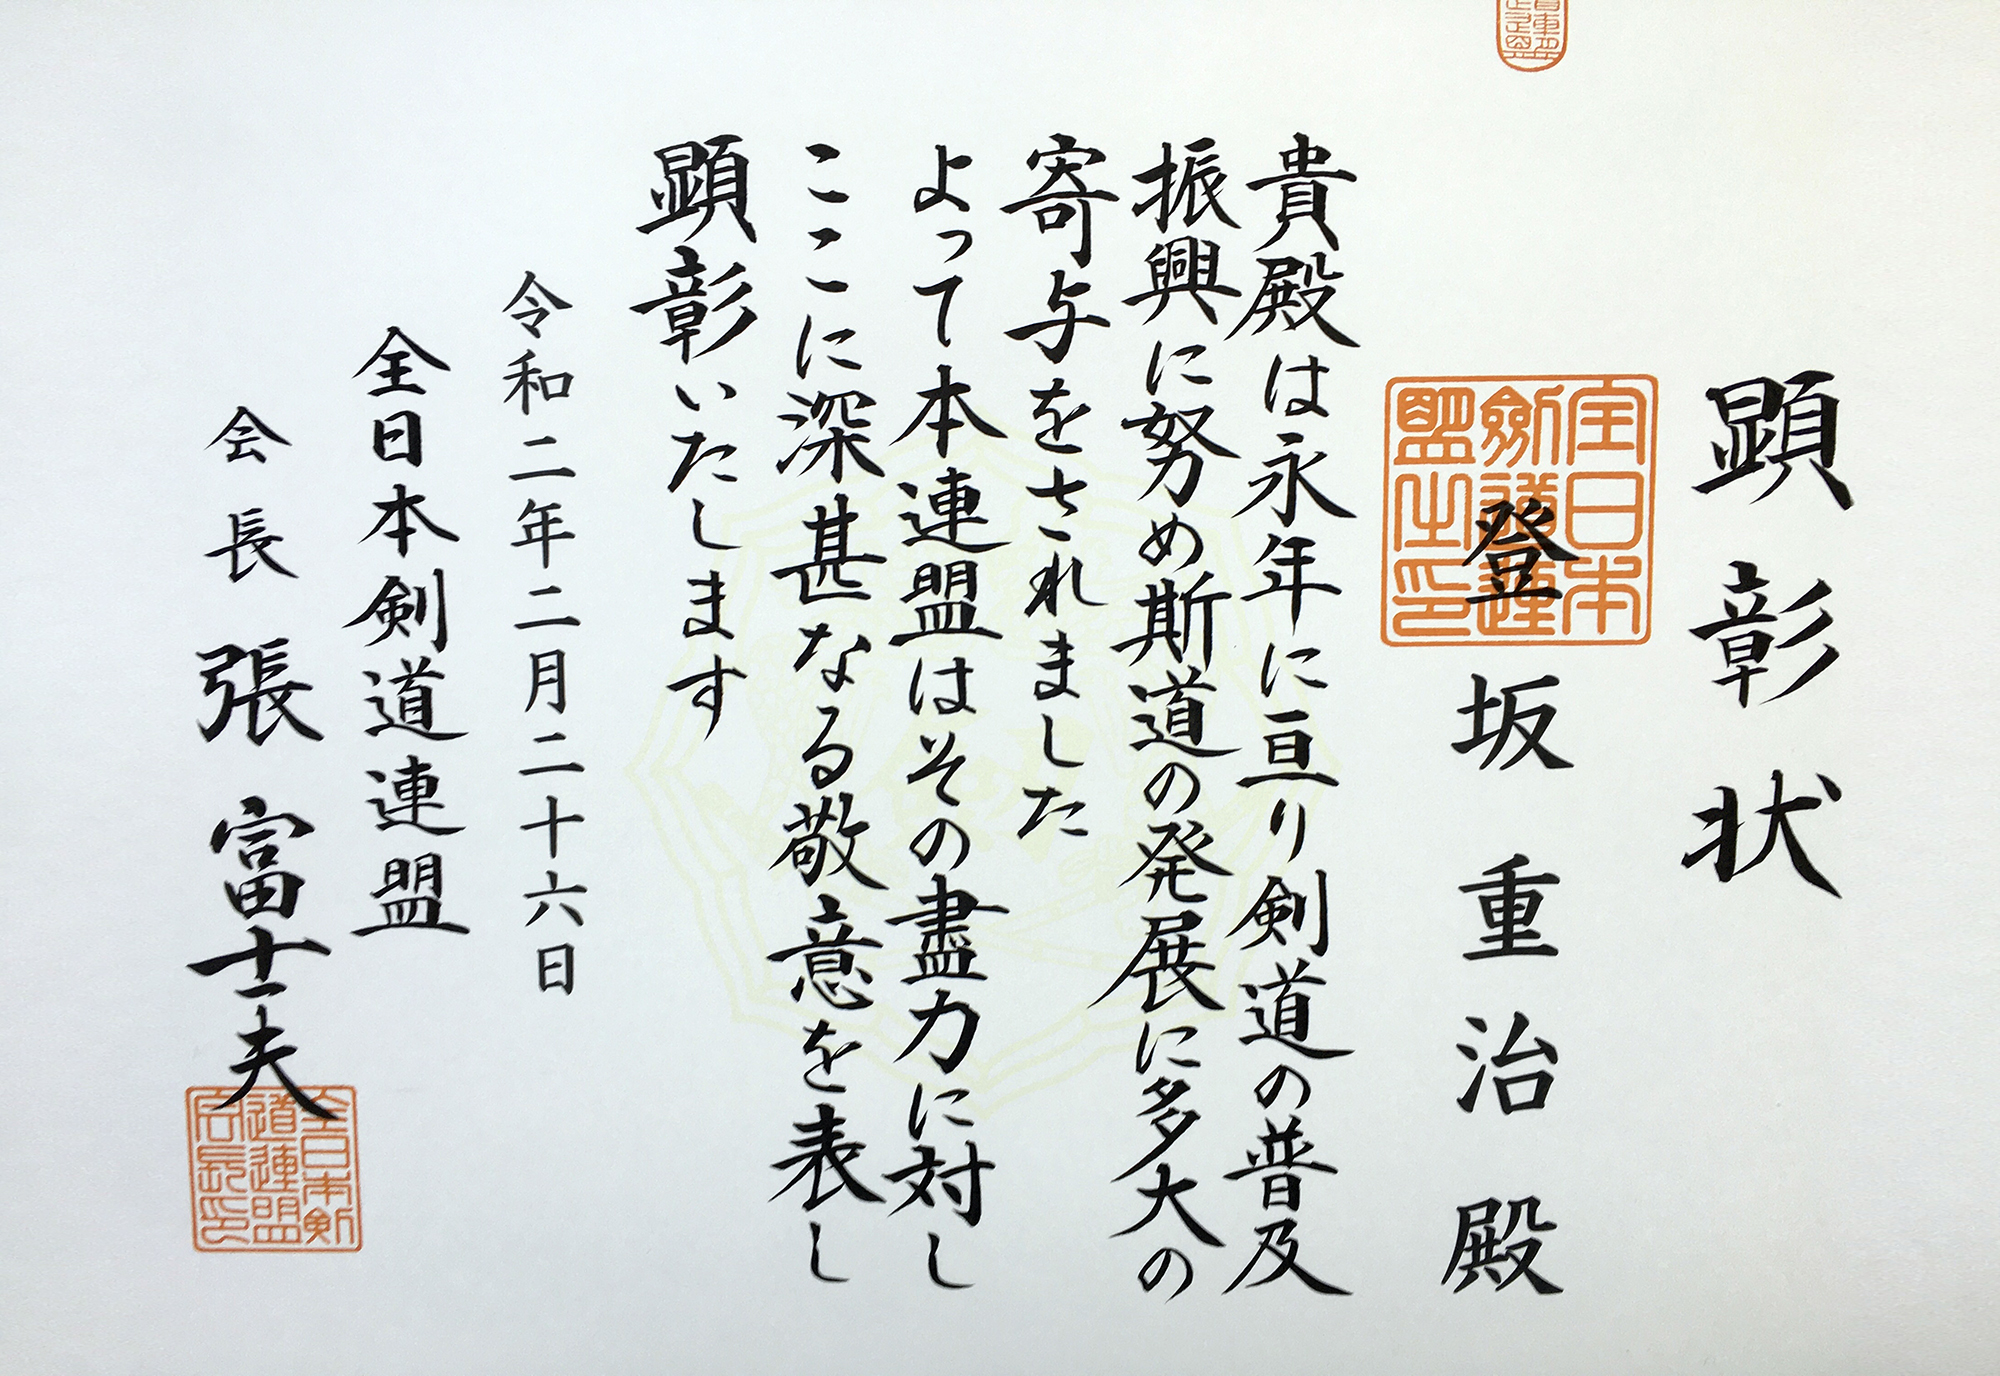 顕彰状
登坂重治殿
貴殿は永年に亘り剣道の普及
振興に努め斯道の発展に多大の
寄与をされました
よって本連盟はその盡力に対し
ここに深甚なる敬意を表し
顕彰いたします
令和二年二月二十六日
全日本剣道連盟
会長 張富士夫
全日本
剣道連
盟之印
全日本剣
道連盟
会長印